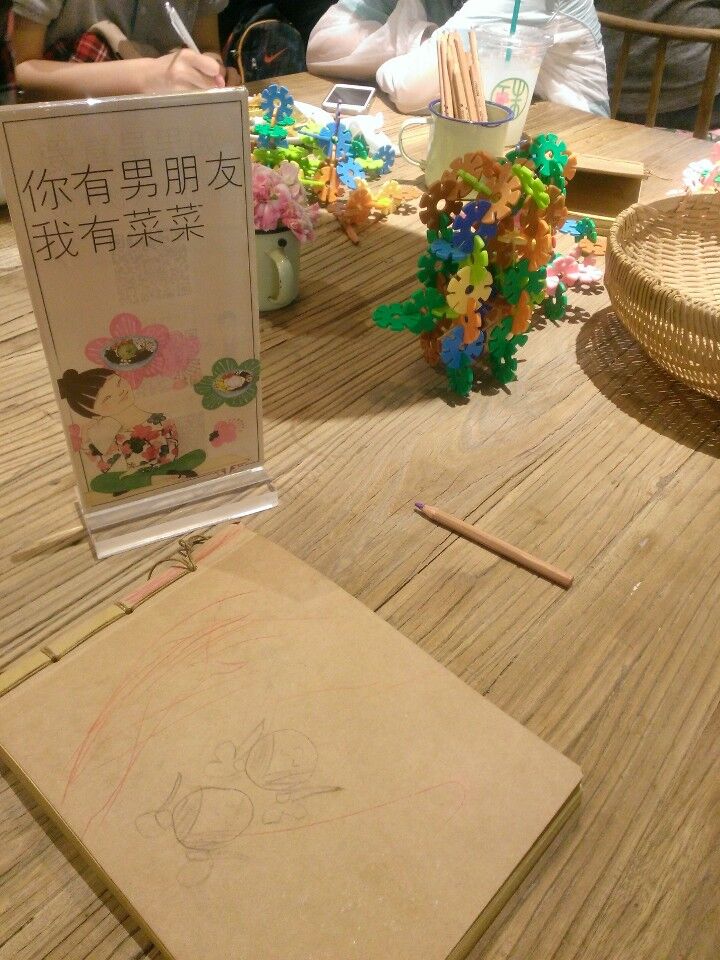 你有男朋友
我有菜菜